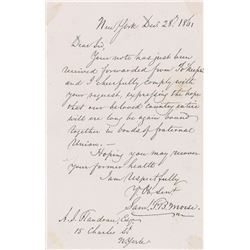 New York Dec. 28. 1861
Dear Sir,
Your note has just been
received forwarded from Po'keepsie
and I cheerfully comply with
your request, expressing the hope
that our beloved country entire
will are long be again bound
together in bonds of fraternal
Union.—
Hoping you may recover
your former health
I am respectfully
Yr Ob. Servt
Saml. F. B. Morse.
A. S. Flandrau, Esq.
15 Charles St
N York